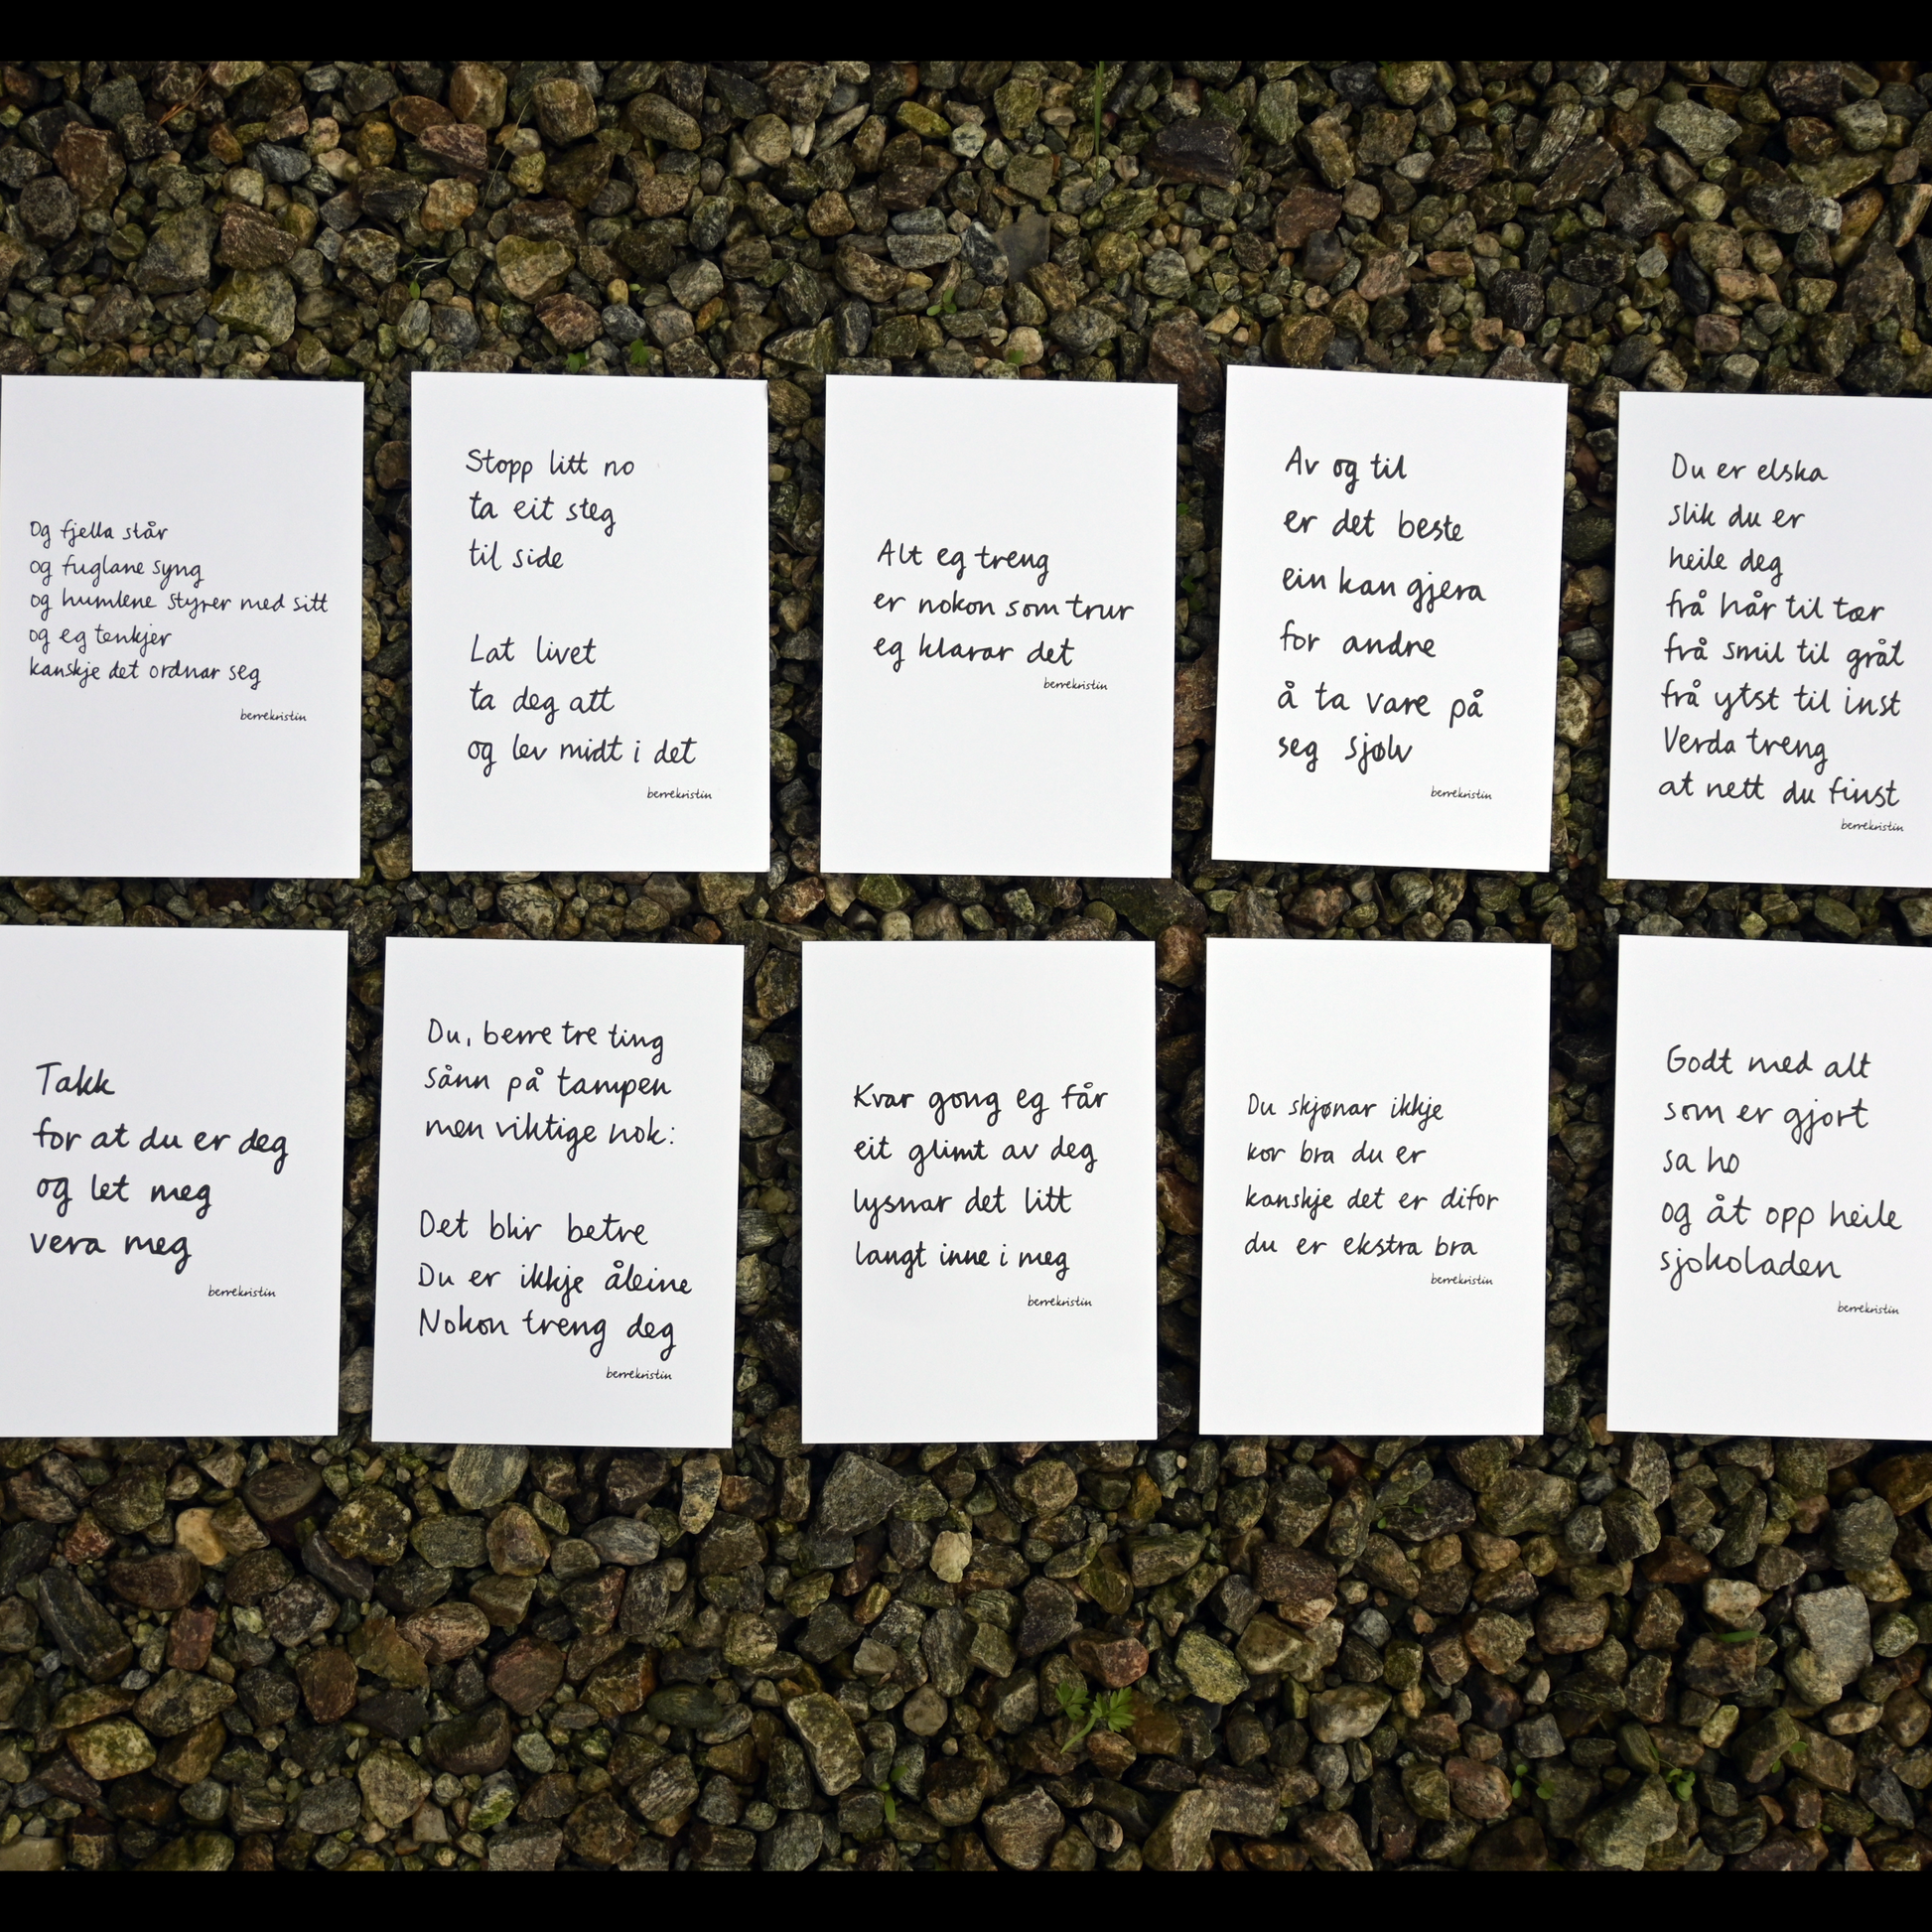 Og fjella står
og fuglane syng
og humlene styrer med sitt
og eg tenkjer
kanskje det ordnar seg
berrekristin
Stopp litt no
ta eit steg
til side
Lat livet
ta deg att
og lev midt i det
berrekristin
Alt eg treng
er nokon som trur
eg klarar det
berrekristin
Av og til
er det beste
ein kan gjera
for andre
å ta vare på
seg sjølv
berrekristin
Du er elska
slik du er
heile deg
frå hår til tær
frå smil til gråt
frå ytst til inst
Verda treng
at nett du finst
berrekristin
Takk
for at du er deg
og let meg
vera meg
berrekristin
Du, berre tre ting
sånn på tampen
men viktige nok:
Det blir betre
Du er ikkje åleine
Nokon treng deg
berrekristin
Kvar gong eg får
eit glimt av deg
lysnar det litt
langt inne i meg
berrekristin
Du skjønar ikkje
kor bra du er
kanskje det er difor
du er ekstra bra
berrekristin
Godt med alt
som er gjort
sa ho
og åt opp heile
sjokoladen
berrekristin